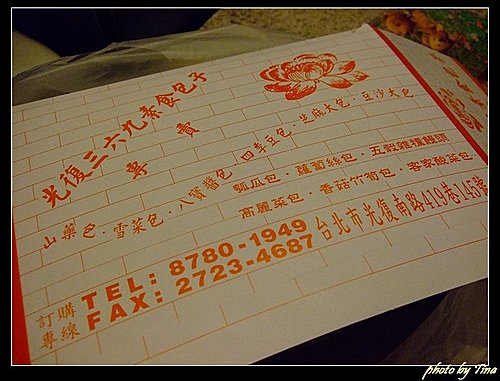 光復三六九素食包子
專賣
山藥包．雪菜包．八寶醬包．四季豆包．芝麻大包．豆沙大包
瓠瓜包．蘿蔔絲包．五穀雜糧饅頭
高麗菜包．香菇竹筍包．客家酸菜包
訂購專線
TEL: 8780-1949
FAX: 2723-4687
台北市光復南路419巷145號
photo by Tina